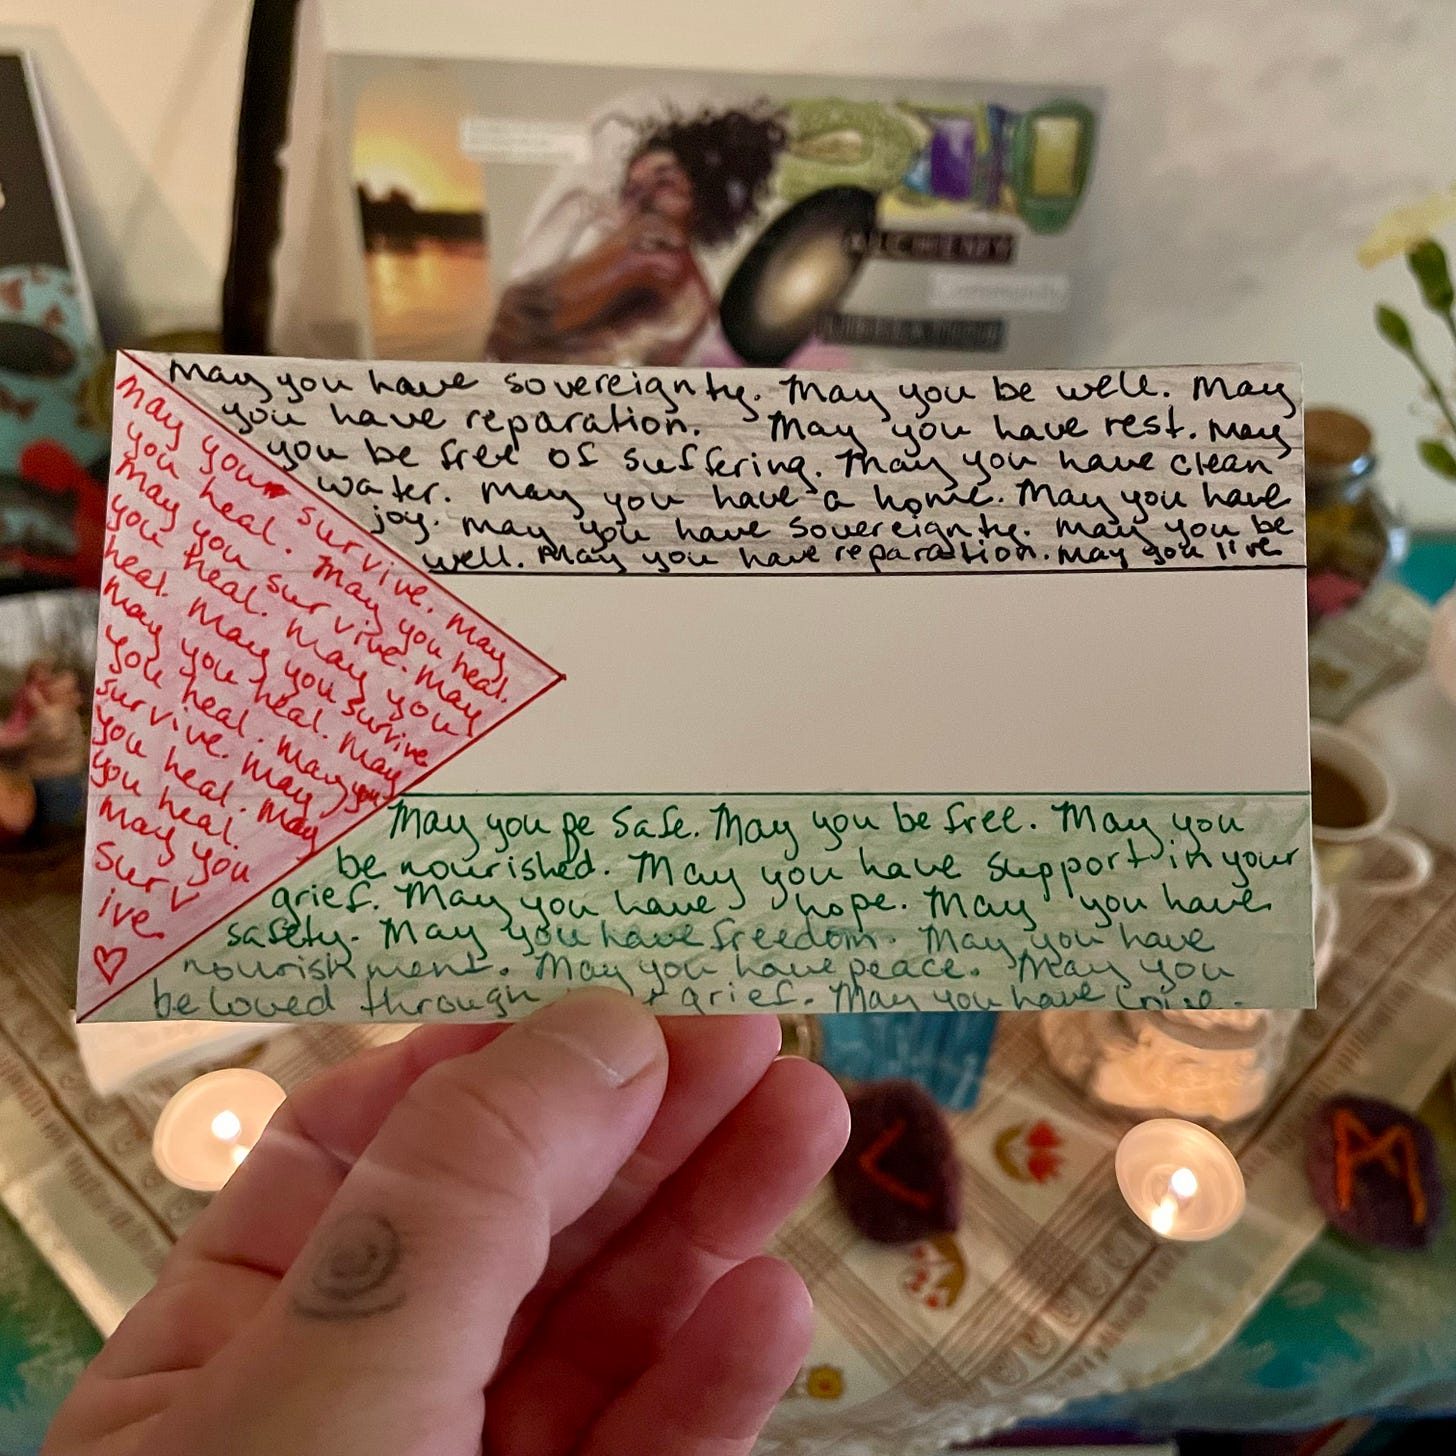 May you have sovereignty. May you be well. May
you have reparation. May you have rest. May
you be free of suffering. May you have clean
water. May you have a home. May you have
joy. May you have sovereignty. May you be
well. May you have reparation. May you live
May you survive. May
you heal. May you heal.
May you survive. May
you heal. May you
heal. May you survive
May you heal. May
you heal. May you
survive. May
you heal. May
you heal.
May you
surv
ive
May you be safe. May you be free. May you
be nourished. May you have support in your
grief. May you have hope. May you have
safety. May you have freedom. May you have
nourishment. May you have peace. May you
be loved through grief. May you have
ALCHEMY
Community
LIBERATION